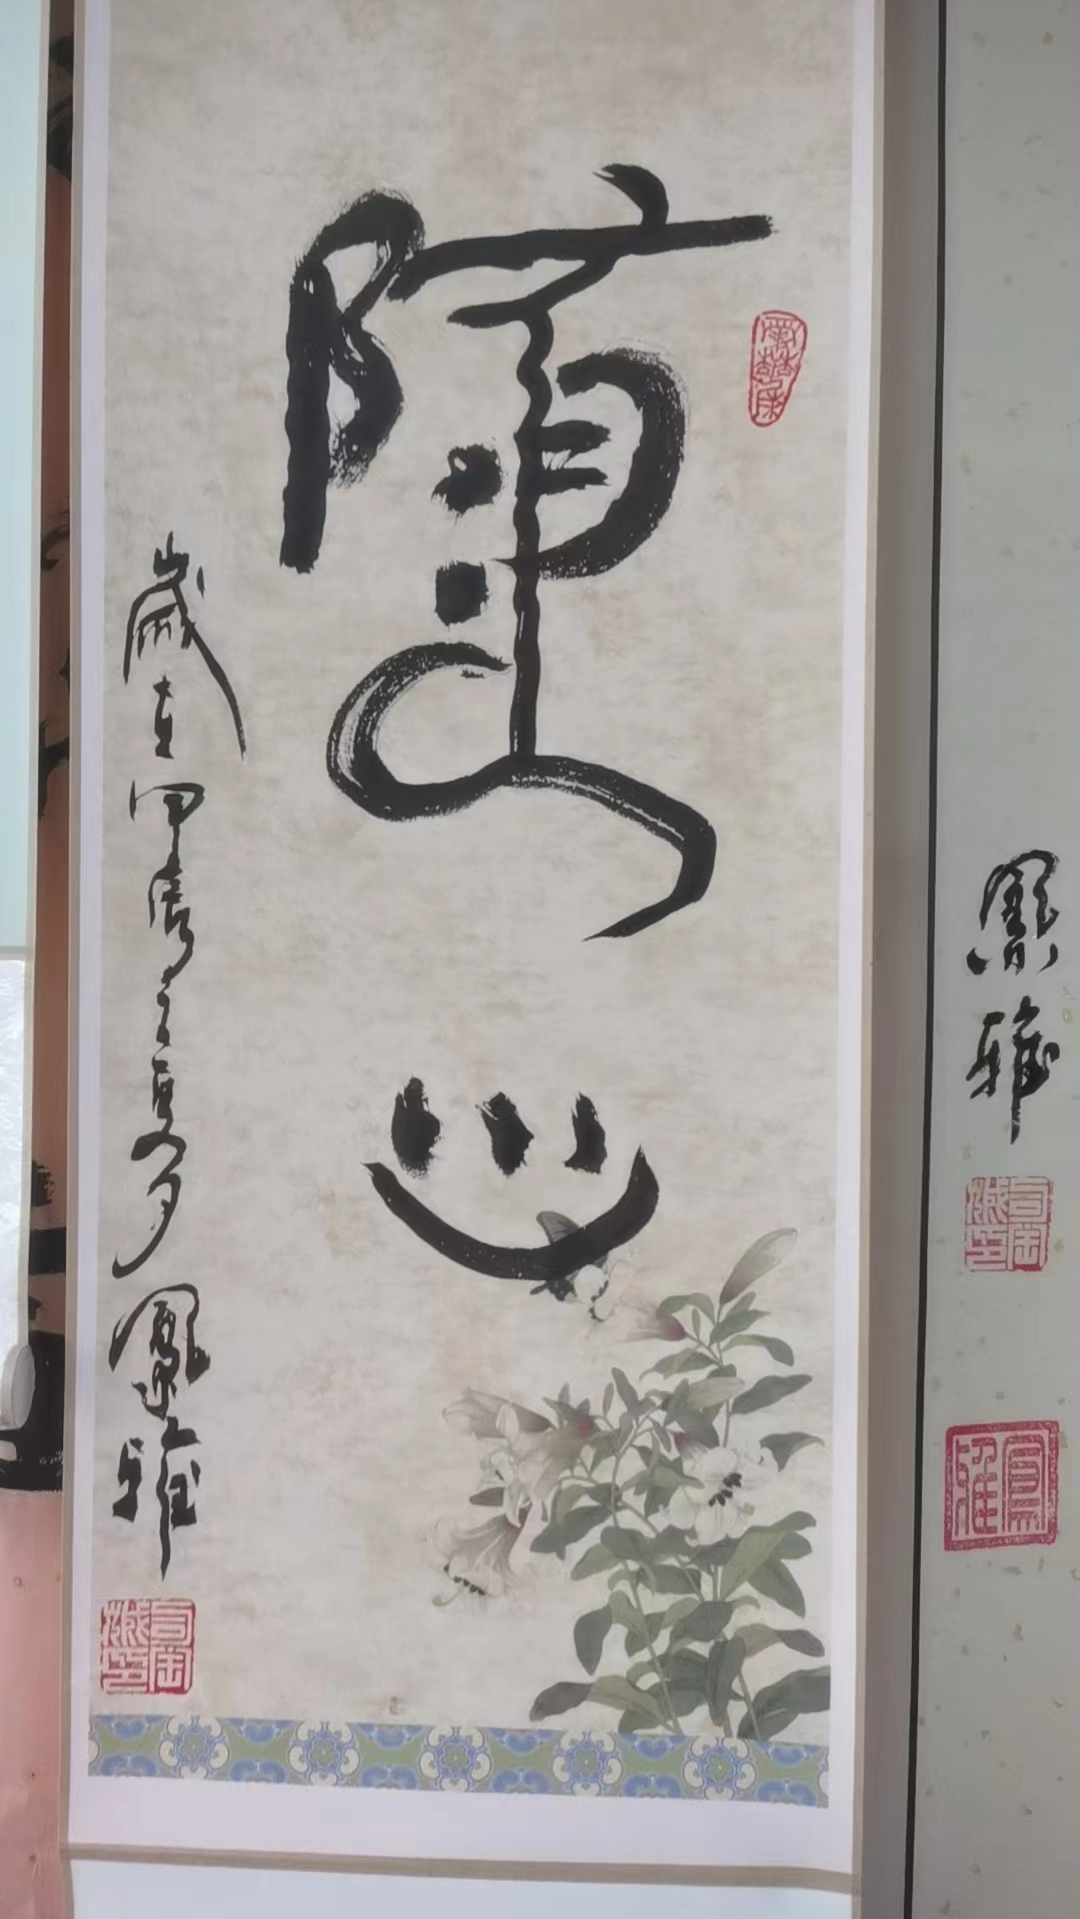 隨心
歲在甲辰之夏月
鳳雅
鳳雅
鳳雅